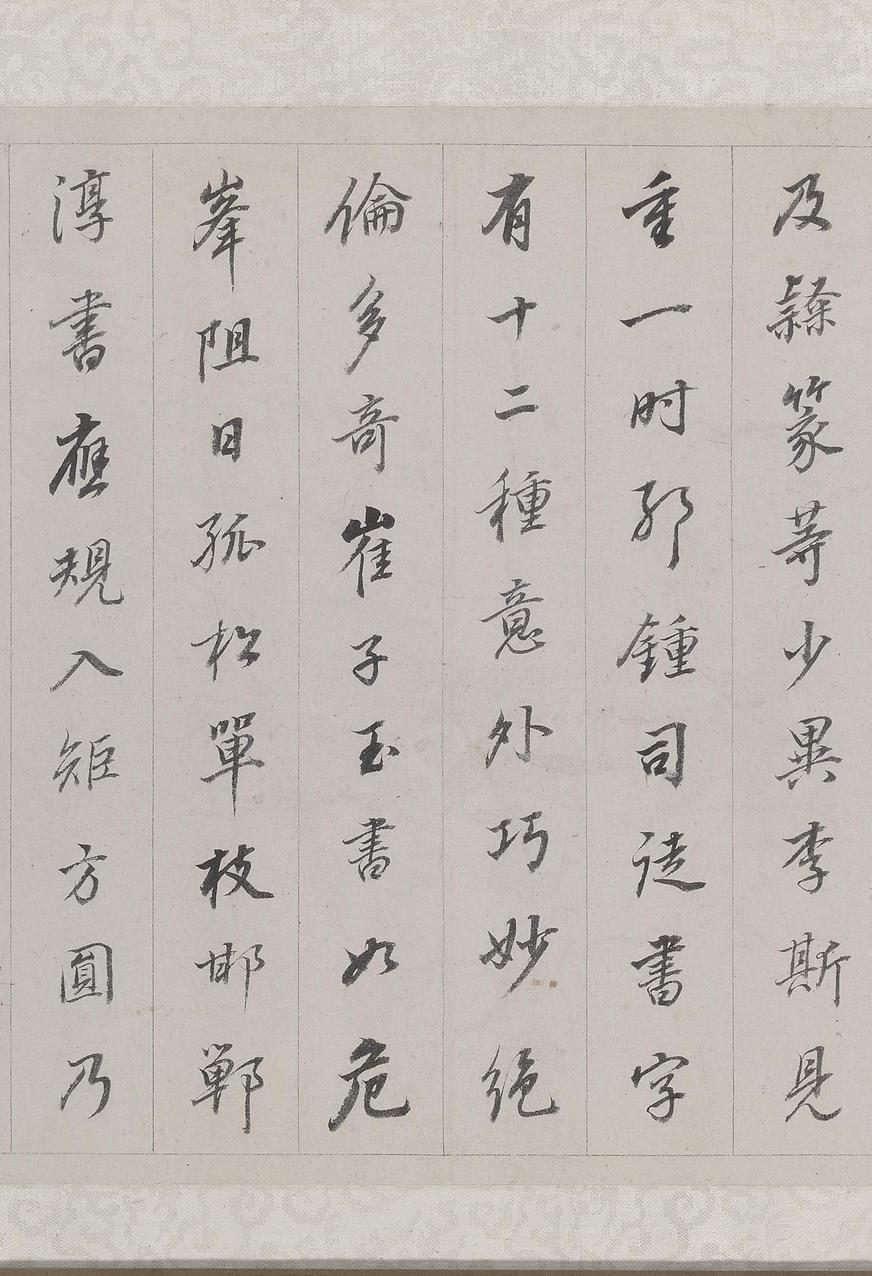 及隸篆等少異李斯見
重一时耶鍾司徒書字
有十二種意外巧妙絕
倫多奇崔子玉書如危
峯阻日孤松單枝邯鄲
淳書應規入矩方圓乃